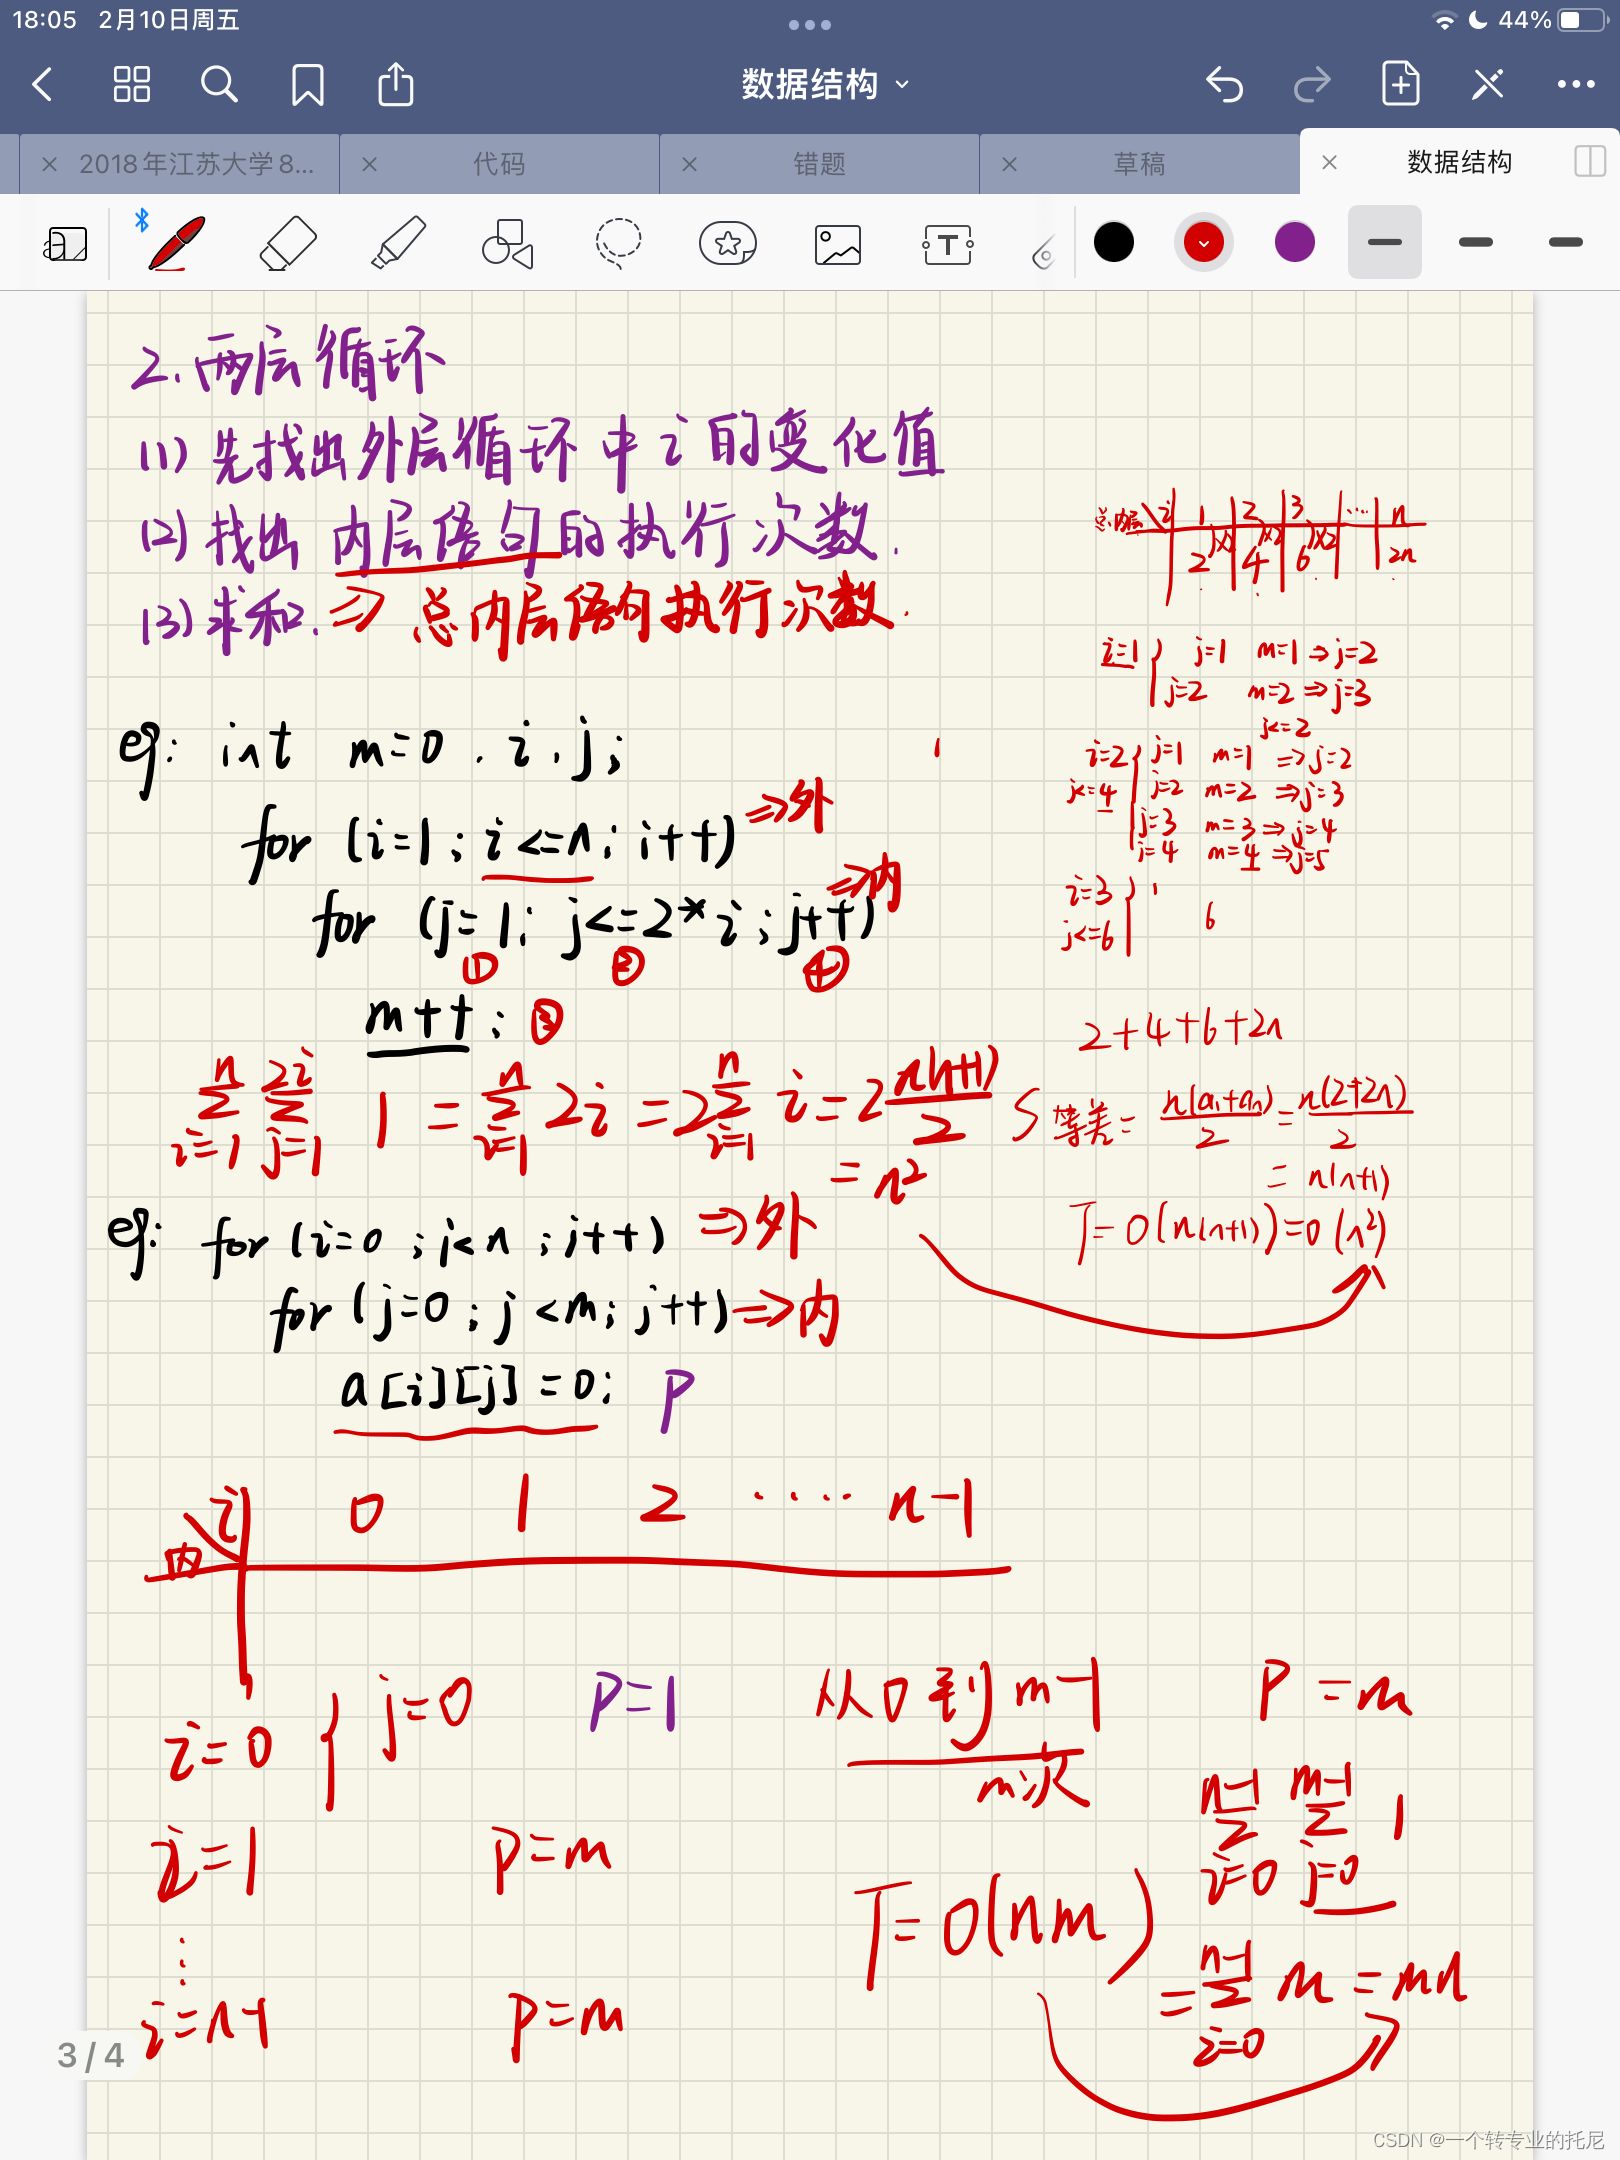 18:05 2月10日周五
44%
数据结构
2018年江苏大学8...
代码
错题
草稿
数据结构
2.两层循环
(1)先找出外层循环中i的变化值
(2)找出内层语句的执行次数.
(3)求和. => 总内层语句执行次数.
总内层 i 1 2 3 ... n
2 4 6 2n
)x2 )x2 )x2
i=1 j=1 m=1 => j=2
j=2 m=2 => j=3
j<=2
i=2 j=1 m=1 => j=2
j<=4 j=2 m=2 => j=3
j=3 m=3 => j=4
j=4 m=4 => j=5
i=3
j<=6 6
eg: int m=0 . i . j;
for (i=1; i<=n; i++) => 外
for (j=1; j<=2*i; j++) => 内
① ② ④
m++; ③
n∑i=1 2i∑j=1 1 = n∑i=1 2i = 2 n∑i=1 i = 2 n(n+1)/2
= n²
2+4+6+2n
S等差 = n(a₁+aₙ)/2 = n(2+2n)/2
= n(n+1)
T=O(n(n+1))=O(n²)
eg: for (i=0; i<n; i++) => 外
for (j=0; j<m; j++) => 内
a[i][j]=0; P
i 0 1 2 ..... n-1
内
i=0 { j=0 P=1 从0到m-1 P=m
m次
i=1 P=m
n-1∑i=0 m-1∑j=0 1
T=O(nm)
= n-1∑i=0 m = mn
⋮
i=n-1 P=m
3/4
CSDN @一个转专业的托尼